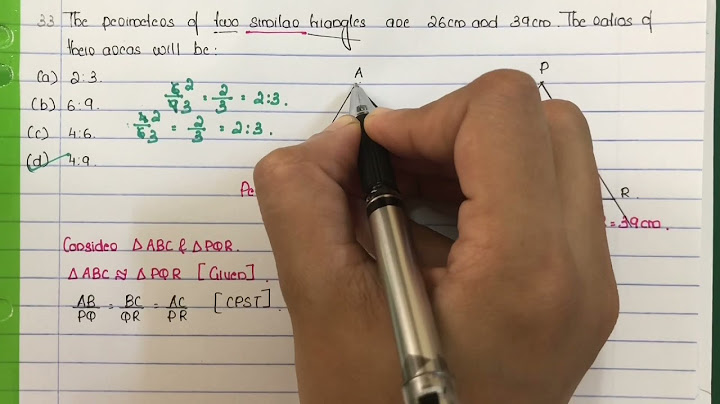 33. The perimeters of two similar triangles are 26cm and 39cm. The ratios of
their areas will be:
(a) 2:3.
(b) 6:9.
(c) 4:6.
(d) 4:9.
6 2 / 9 3 = 2/3 = 2:3.
4 2 / 6 3 = 2/3 = 2:3.
A
P
R
= 39cm.
Consider △ABC & △PQR.
△ABC ≈ △PQR [Given].
AB/PQ = BC/QR = AC/PR [CPST].